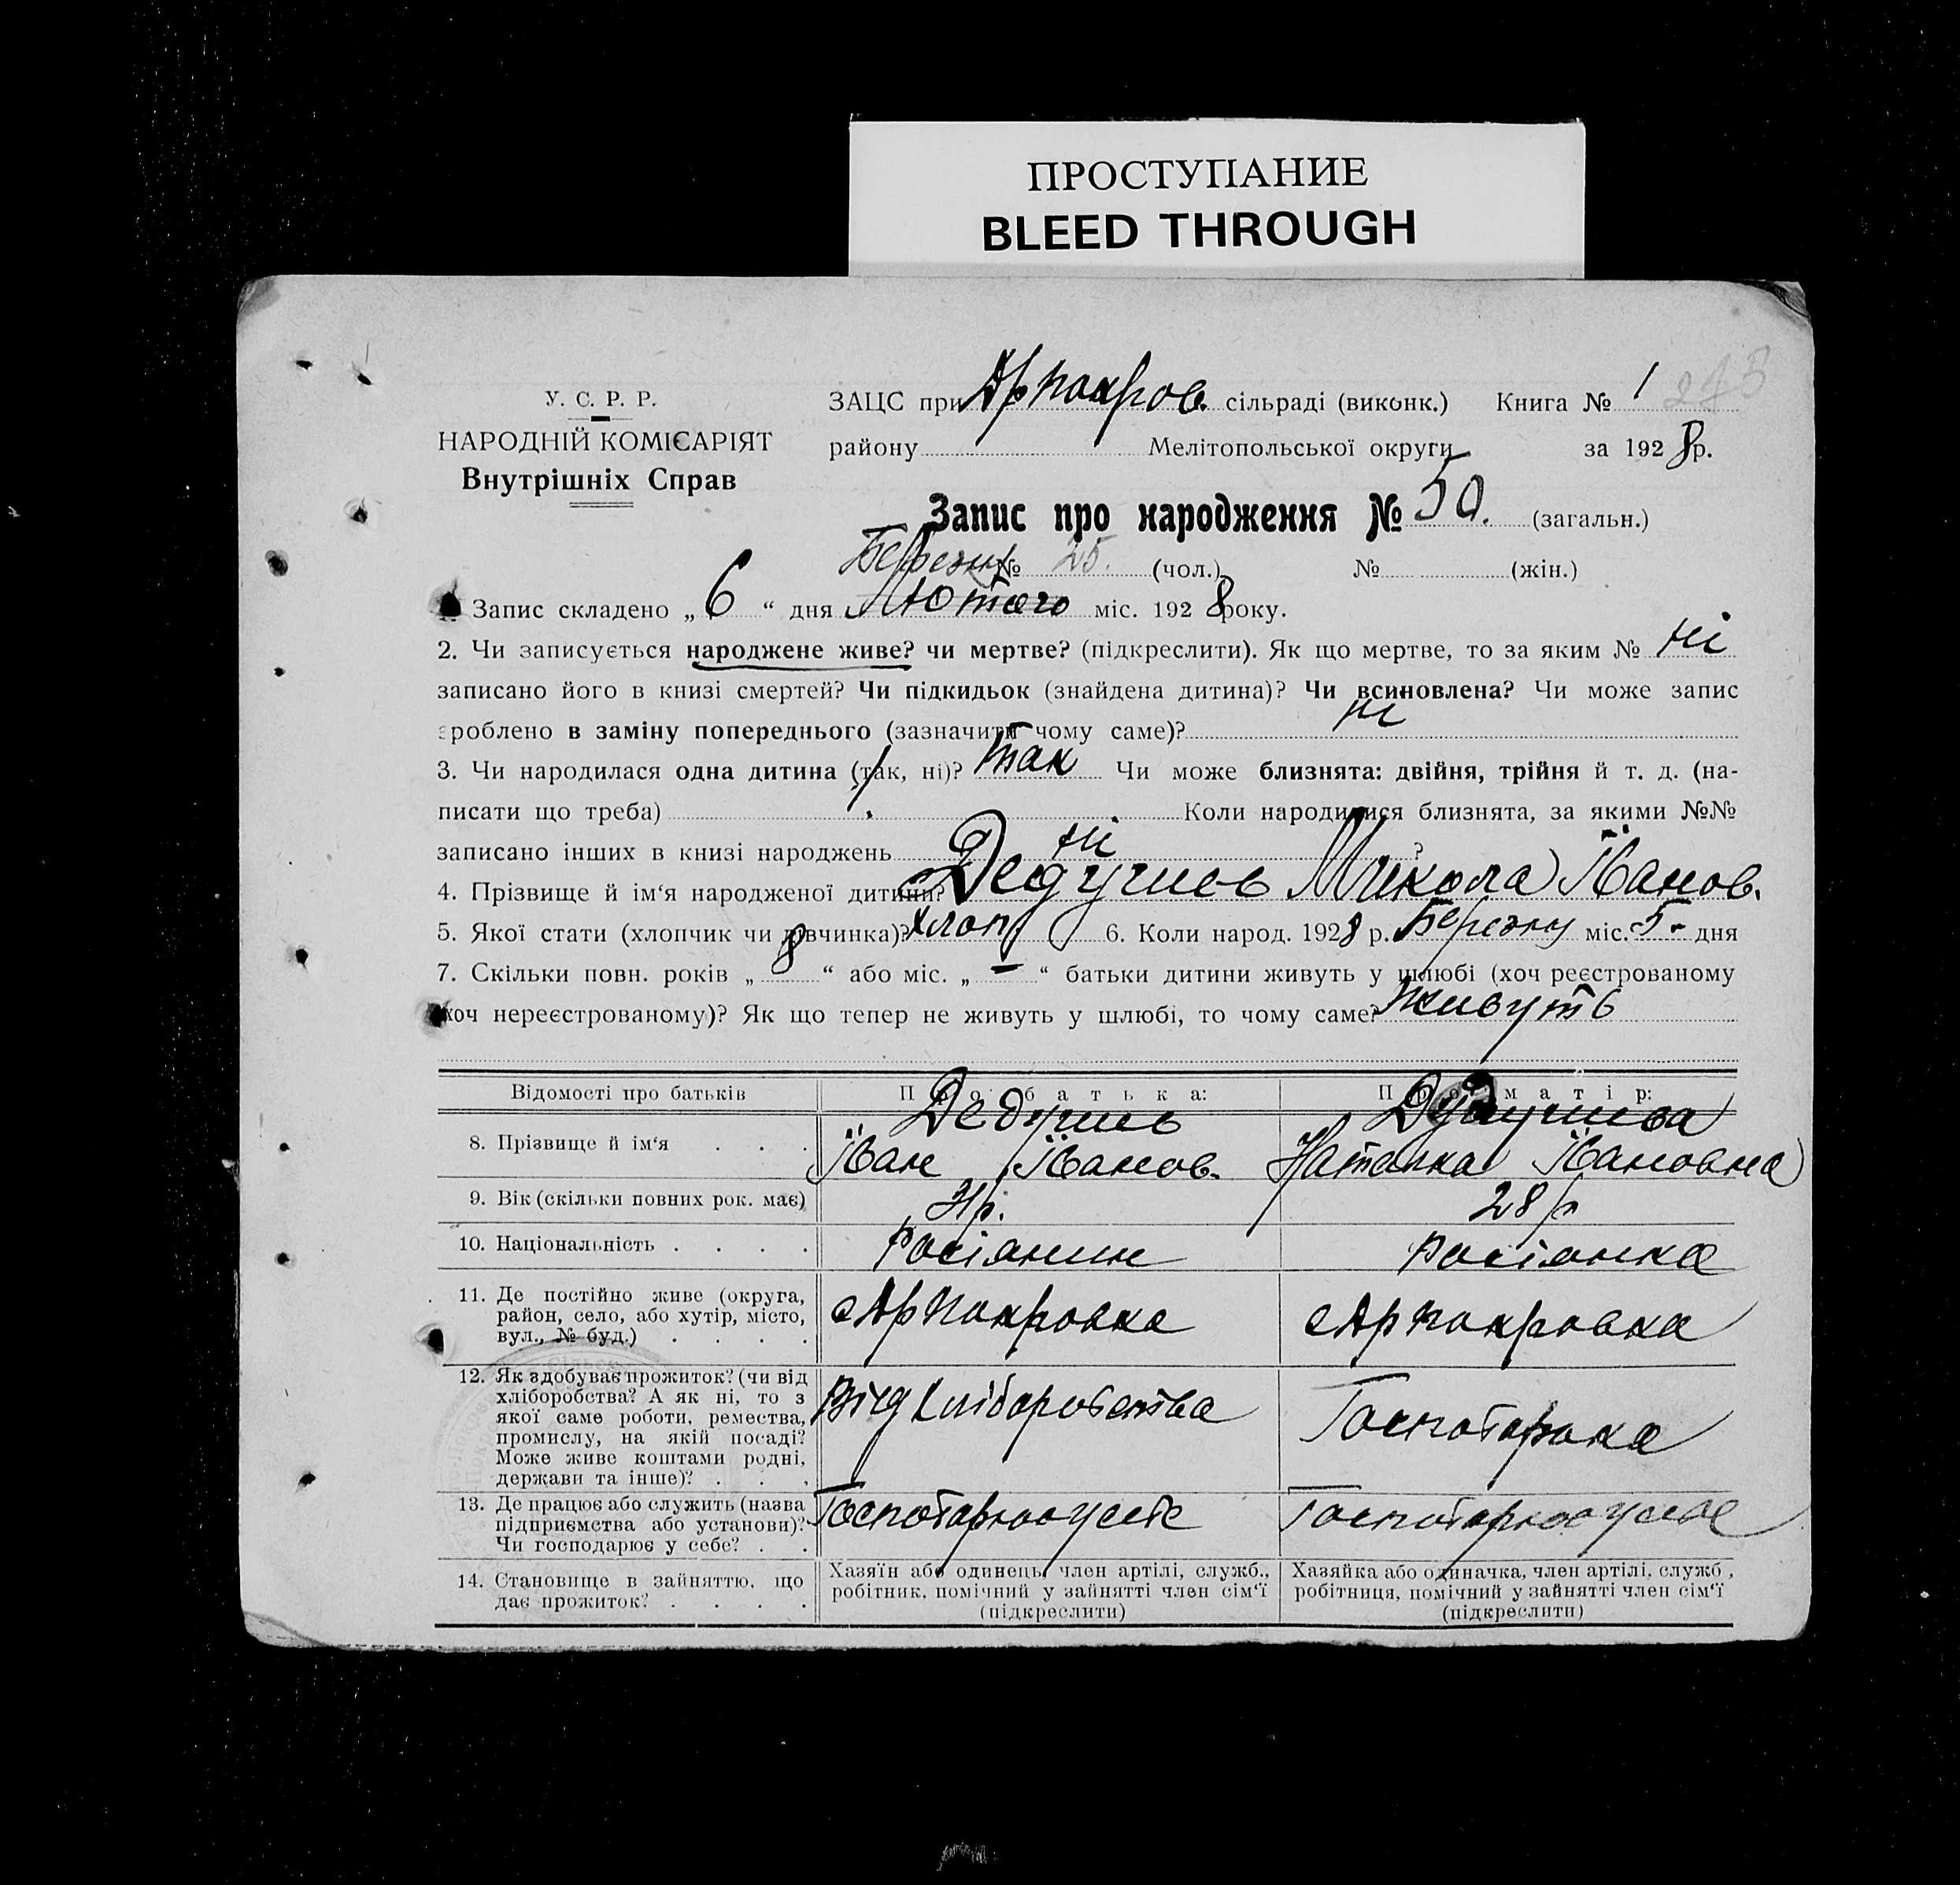 ПРОСТУПАНИЕ
BLEED THROUGH
У. С. Р. Р.
НАРОДНІЙ КОМІСАРІЯТ
Внутрішніх Справ
ЗАЦС при Арпокров. сільраді (виконк.) Книга № 1
району Мелітопольської округи за 1928 р.
Запис про народження № 50. (загальн.)
Березня
№ 25. (чол.) № (жін.)
1. Запис складено „6“ дня Лютого міс. 1928 року.
2. Чи записується народжене живе? чи мертве? (підкреслити). Як що мертве, то за яким № ні
записано його в книзі смертей? Чи підкидьок (знайдена дитина)? Чи всиновлена? Чи може запис
зроблено в заміну попереднього (зазначити чому саме)? ні
3. Чи народилася одна дитина (так, ні)? так Чи може близнята: двійня, трійня й т. д. (на-
писати що треба) Коли народилися близнята, за якими №№
записано інших в книзі народжень ні ?
4. Прізвище й ім'я народженої дитини? Дедушев Микола Іванов.
5. Якої стати (хлопчик чи дівчинка)? хлоп 6. Коли народ. 1928 р. Березня міс. 5 дня
7. Скільки повн. років „8“ або міс. „—“ батьки дитини живуть у шлюбі (хоч реєстрованому
хоч нереєстрованому)? Як що тепер не живуть у шлюбі, то чому саме? живуть
Відомості про батьків Про батька: Про матір:
8. Прізвище й ім'я . . . Дедушев
Іван Іванов. Наталка Івановна
9. Вік (скільки повних рок. має) 31р. 28 р
10. Національність . . . . росіянин росіянка
11. Де постійно живе (округа, район, село, або хутір, місто, вул., № буд.) . . . . с Арпокровка с Арпокровка
12. Як здобуває прожиток? (чи від хліборобства? А як ні, то з якої саме роботи, ремества, промислу, на якій посаді? Може живе коштами родні, держави та інше)? . . . Від хліборобства
13. Де працює або служить (назва підприємства або установи)? Чи господарює у себе? . .
14. Становище в зайняттю, що дає прожиток? . . . .
Хазяїн або одинець, член артілі, служб., робітник, помічний у зайнятті член сім'ї (підкреслити)
Хазяйка або одиначка, член артілі, служб., робітниця, помічний у зайнятті член сім'ї (підкреслити)